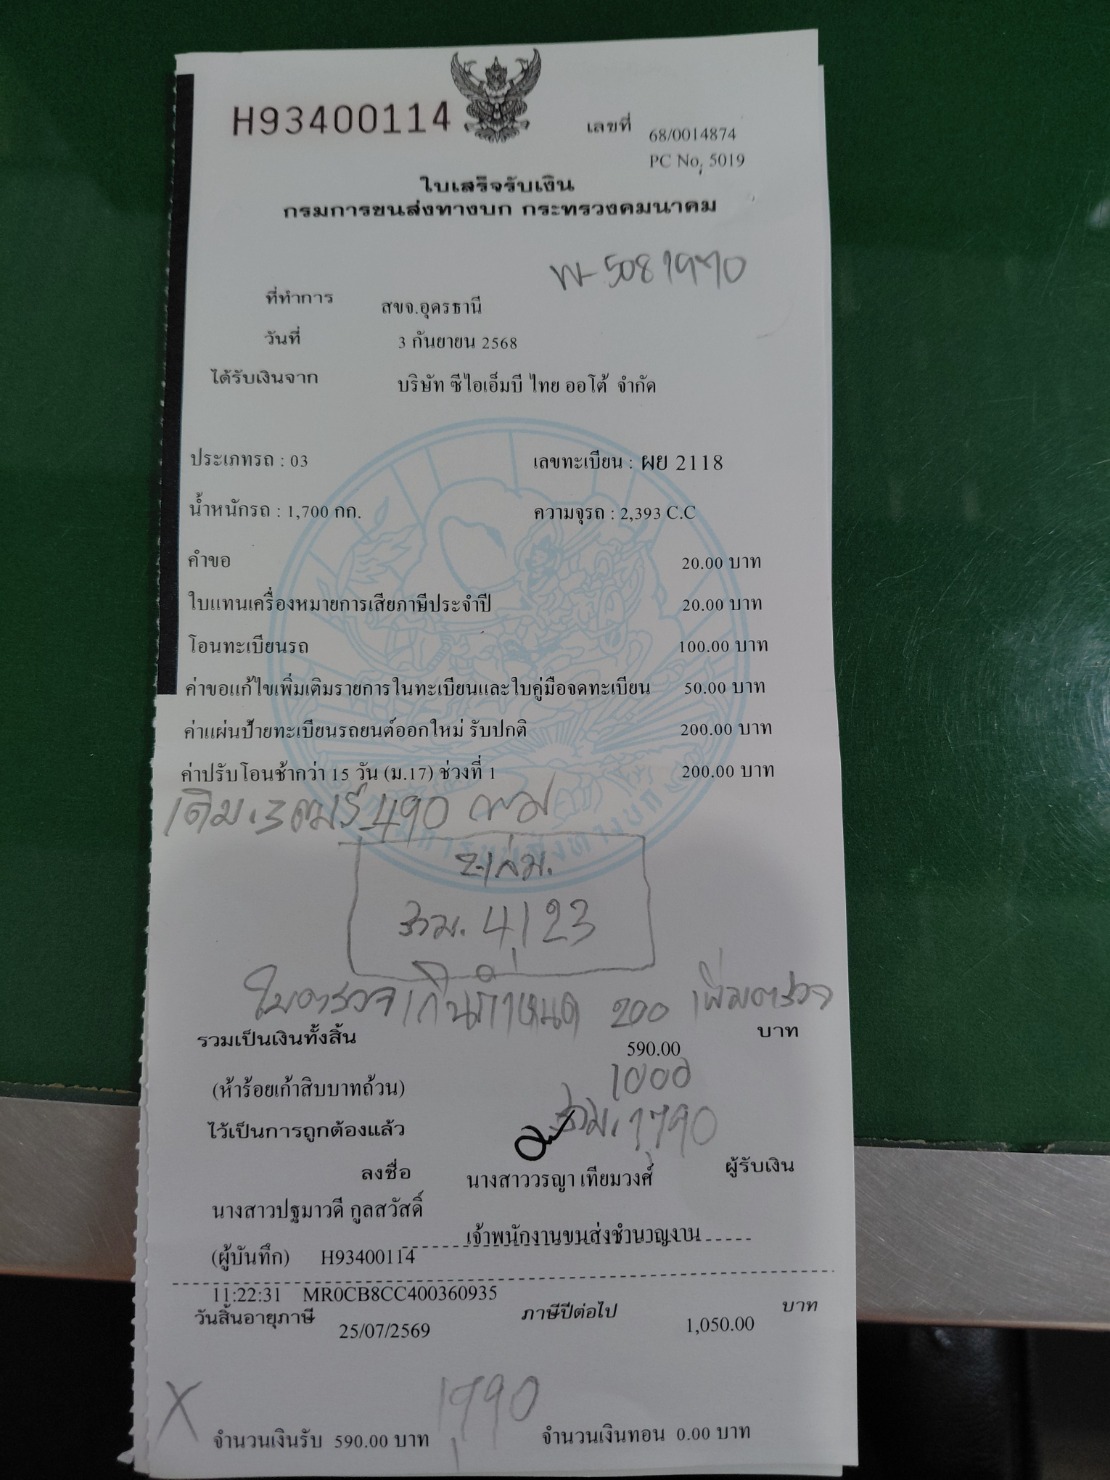 H93400114
เลขที่ 68/0014874
PC No. 5019
ใบเสร็จรับเงิน
กรมการขนส่งทางบก กระทรวงคมนาคม
ที่ทำการ สขจ.อุดรธานี
วันที่ 3 กันยายน 2568
ได้รับเงินจาก บริษัท ซีไอเอ็มบี ไทย ออโต้ จำกัด
ประเภทรถ : 03 เลขทะเบียน : ผย 2118
น้ำหนักรถ : 1,700 กก. ความจุรถ : 2,393 C.C
คำขอ 20.00 บาท
ใบแทนเครื่องหมายการเสียภาษีประจำปี 20.00 บาท
โอนทะเบียนรถ 100.00 บาท
ค่าขอแก้ไขเพิ่มเติมรายการในทะเบียนและใบคู่มือจดทะเบียน 50.00 บาท
ค่าแผ่นป้ายทะเบียนรถยนต์ออกใหม่ รับปกติ 200.00 บาท
ค่าปรับโอนช้ากว่า 15 วัน (ม.17) ช่วงที่ 1 200.00 บาท
490
รวม. 4,123
ใบตรวจเกินกำหนด 200 เพิ่มตรวจ
รวมเป็นเงินทั้งสิ้น 590.00 บาท
(ห้าร้อยเก้าสิบบาทถ้วน) 1000
ไว้เป็นการถูกต้องแล้ว รวม. 1,790
ลงชื่อ นางสาววรญา เทียมวงศ์ ผู้รับเงิน
นางสาวปฐมาวดี กูลสวัสดิ์
เจ้าพนักงานขนส่งชำนาญงาน
(ผู้บันทึก) H93400114
11:22:31 MR0CB8CC400360935
วันสิ้นอายุภาษี 25/07/2569 ภาษีปีต่อไป 1,050.00 บาท
X 1,990
จำนวนเงินรับ 590.00 บาท จำนวนเงินทอน 0.00 บาท